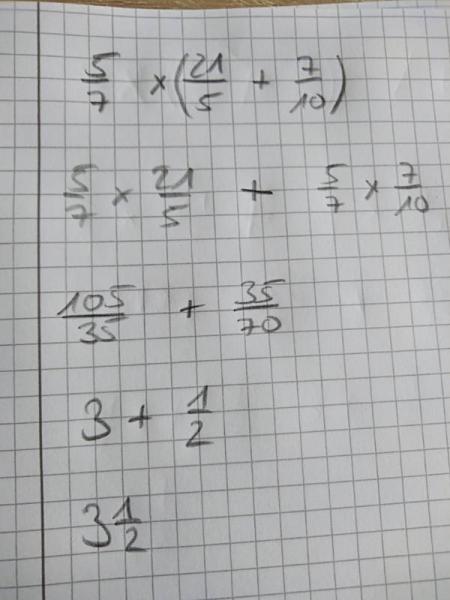 5/7 × (21/5 + 7/10)
5/7 × 21/5 + 5/7 × 7/10
105/35 + 35/70
3 + 1/2
3 1/2